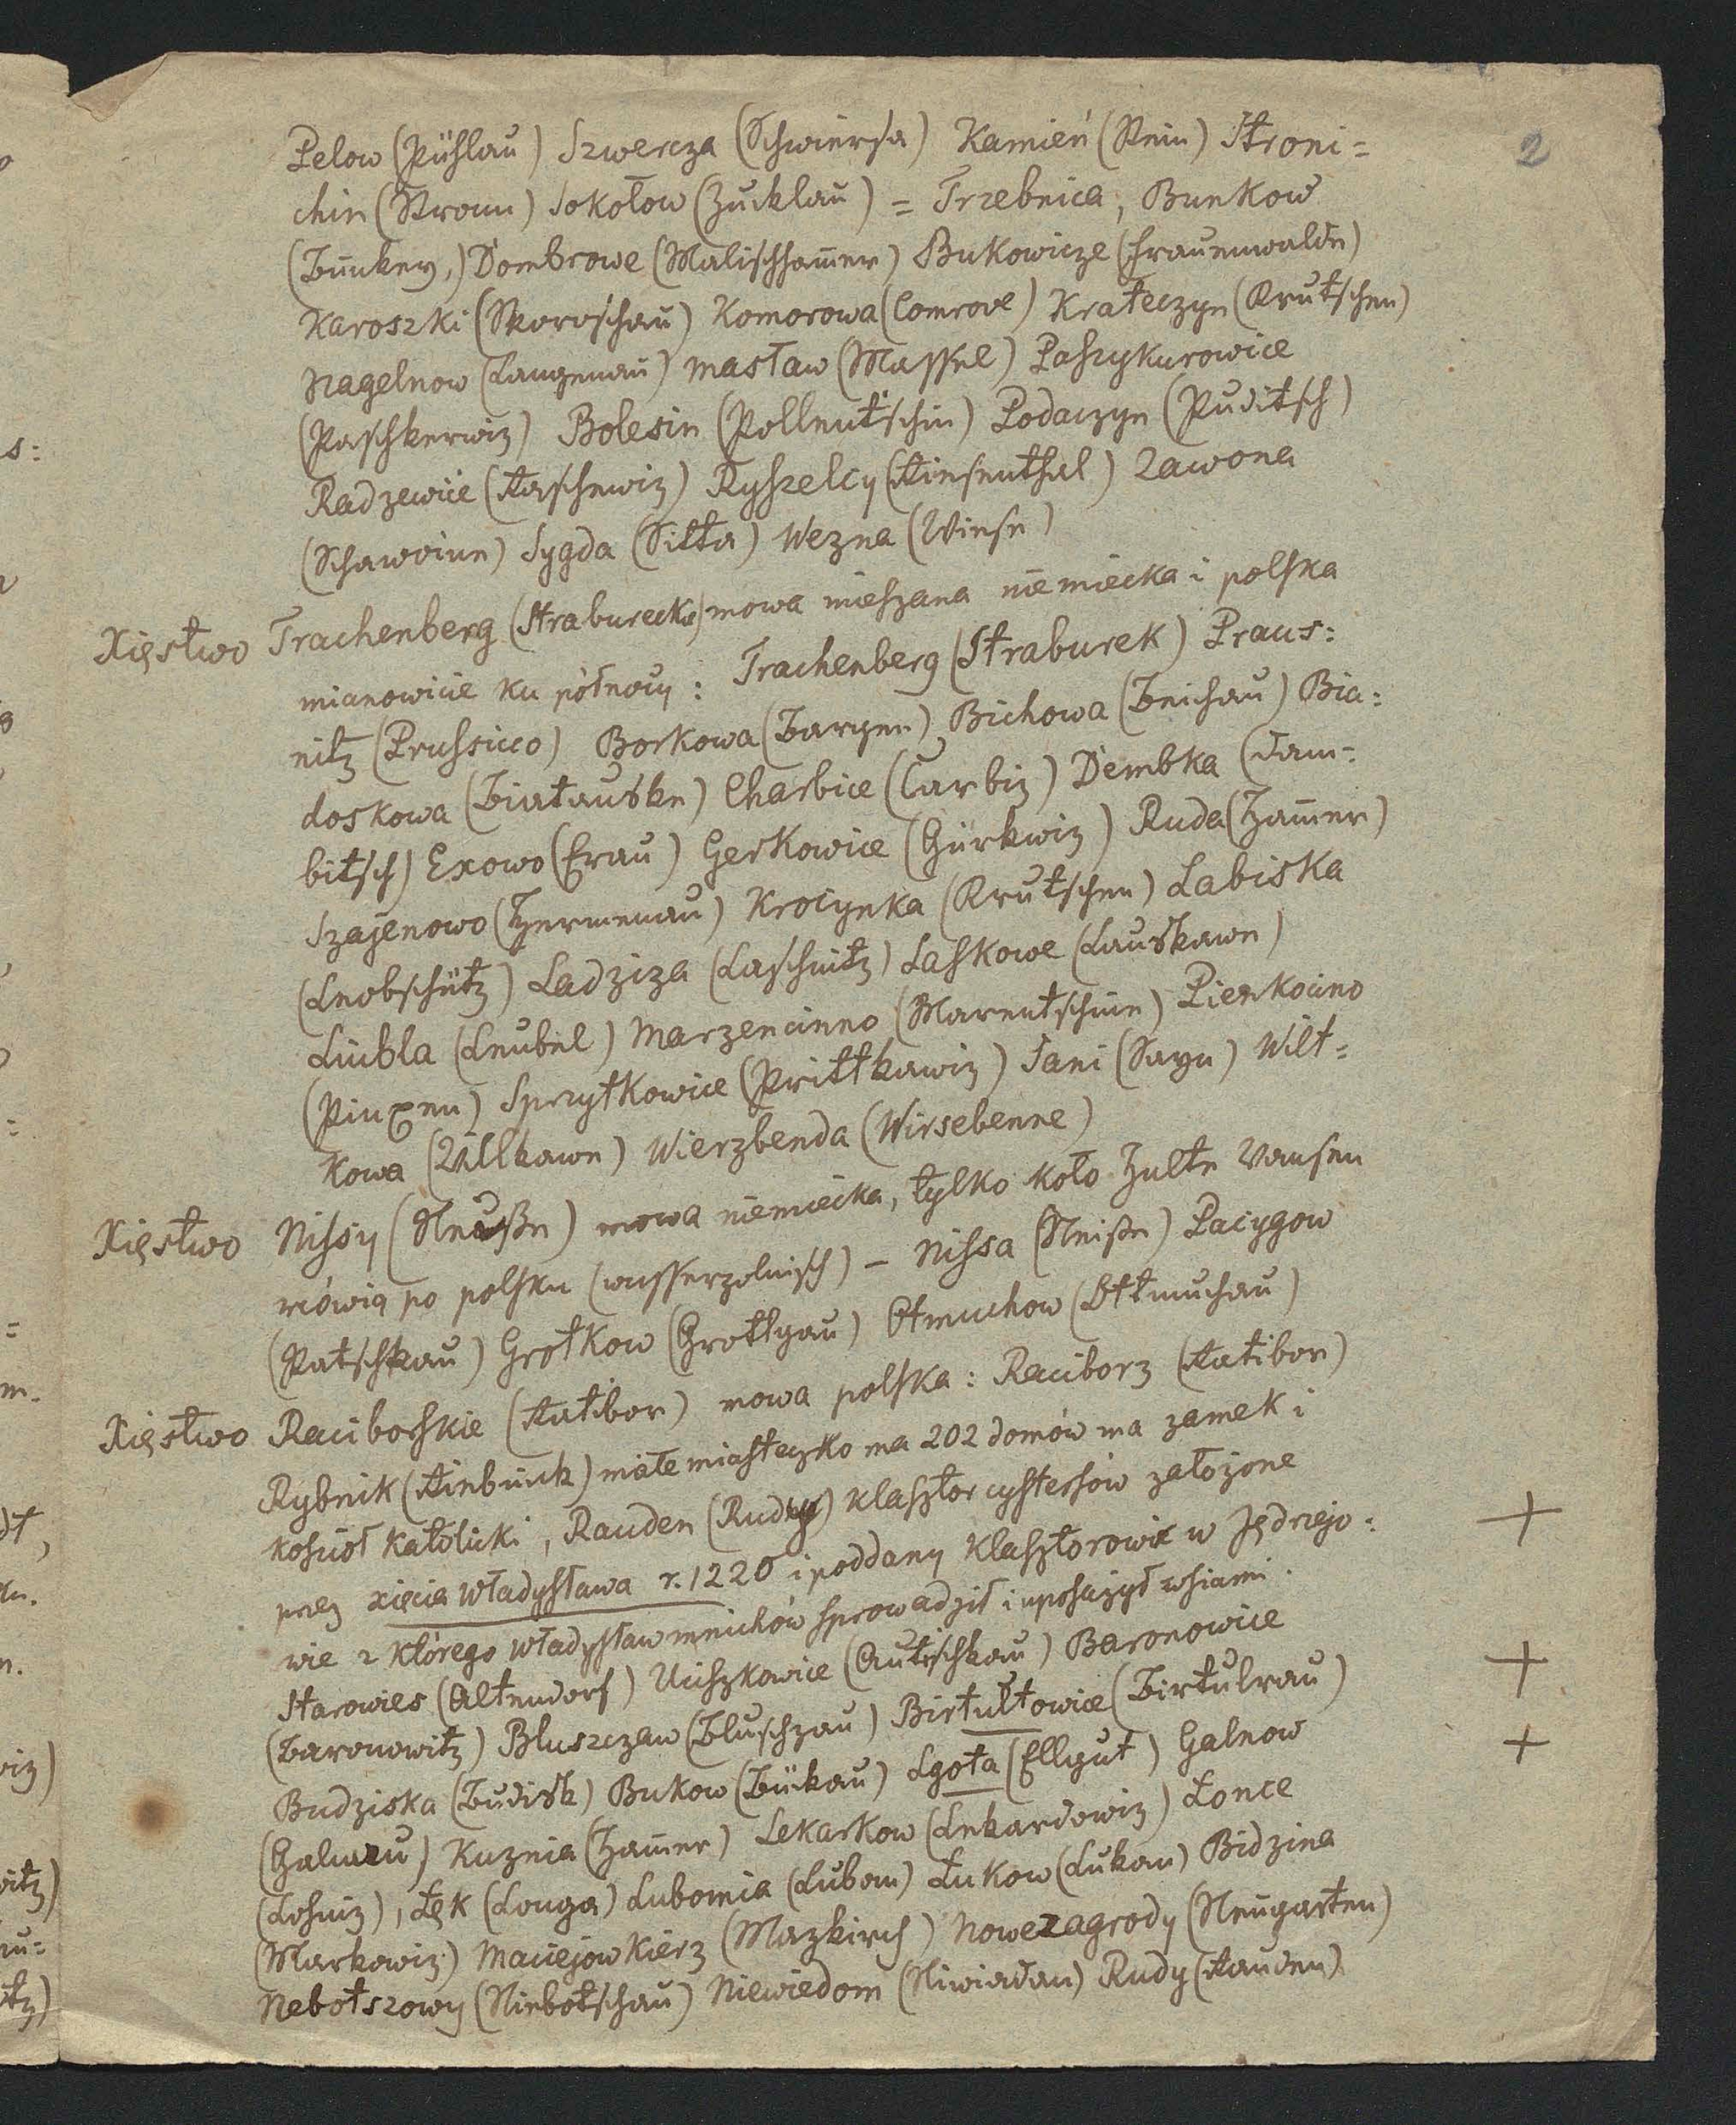 2
Pelow (Pühlau) Szwercza (Schwiersa) Kamień (Stein) Stroni=
chin (Stronn) Sokołow (Zucklau) = Trzebnica, Bunkow
(Bunkey,) Dombrowe (Malischham̄er) Bukowicze (Frauenwalde)
Karoszki (Skoroschau) Komorowa (Comrove) Krateczyn (Krutschen)
Nagelnow (Langenau) Masław (Massel) Paszykurowice
(Paschkerwiz) Bolesin (Pollentschin) Podaczyn (Puditsch)
Radzewice (Raschewiz) Ryszelcy (Riesenthal) Zawona
(Schawoine) Sygda (Sitta) Wezna (Wiese)
Xięstwo Trachenberg (Straburecke) mowa mieszana niemiecka i polska
mianowicie ku północy: Trachenberg (Straburek) Praus:
nitz (Prussicco) Borkowa (Bargen) Bichowa (Beichau) Bia:
doskowa (Biatauske) Charbice (Carbiz) Dembka (Dam=
bitsch) Exowo (Exau) Gerkowice (Gürkwiz) Ruda (Ham̄er)
Szajenowo (Hermenau) Krocynka (Krutschen) Labiska
(Leobschütz) Ladziza (Laschnitz) Laskowe (Lauskawe)
Liubla (Leubel) Marzencinno (Marentschine) Pienkocino
(Pinxen) Sprzytkowice (Prittkawiz) Sani (Sayn) Wilt=
kowa (Willkawe) Wierzbenda (Wirsebenne)
Xięstwo Nissy (Neuße) mowa niemiecka, tylko koło Hulte Vansen
mówią po polsku (wasserpolnisch) – Nissa (Neiße) Pacygow
(Patschkau) Grotkow (Grottgau) Otmuchow (Ottmuchau)
Xięstwo Raciborskie (Ratibor) mowa polska: Raciborz (Ratibor)
Rybnik (Rinbuick) małe miasteczko ma 202 domów ma zamek i
kościoł katolicki, Rauden (Rudy) klasztor cystersów założone
przez xięcia Władysława r. 1220 i poddany klasztorowi w Jędrzejo:
wie z którego Władysław mnichów sprowadził i uposażył wsiami.
Starowies (Altendorf) Uciszkowice (Autischkau) Baronowice
(Baronowitz) Bluszczaw (Bluschzau) Birtułtowice (Birtulrau)
Budziska (Budisk) Bukow (Bukau) Lgota (Ellgut) Galnow
(Galnau) Kuznia (Ham̄er) Lekarkow (Lekardowiz) Łonce
(Losniz), Łęk (Longa) Lubomia (Lubom) Łukow (Lukau) Bidzina
(Markowiz) Maciejowkierz (Mazkirch) Nowezagrody (Neugarten)
Nebotszowy (Niebotschau) Niewiedom (Niwiadom) Rudy (Rauden)